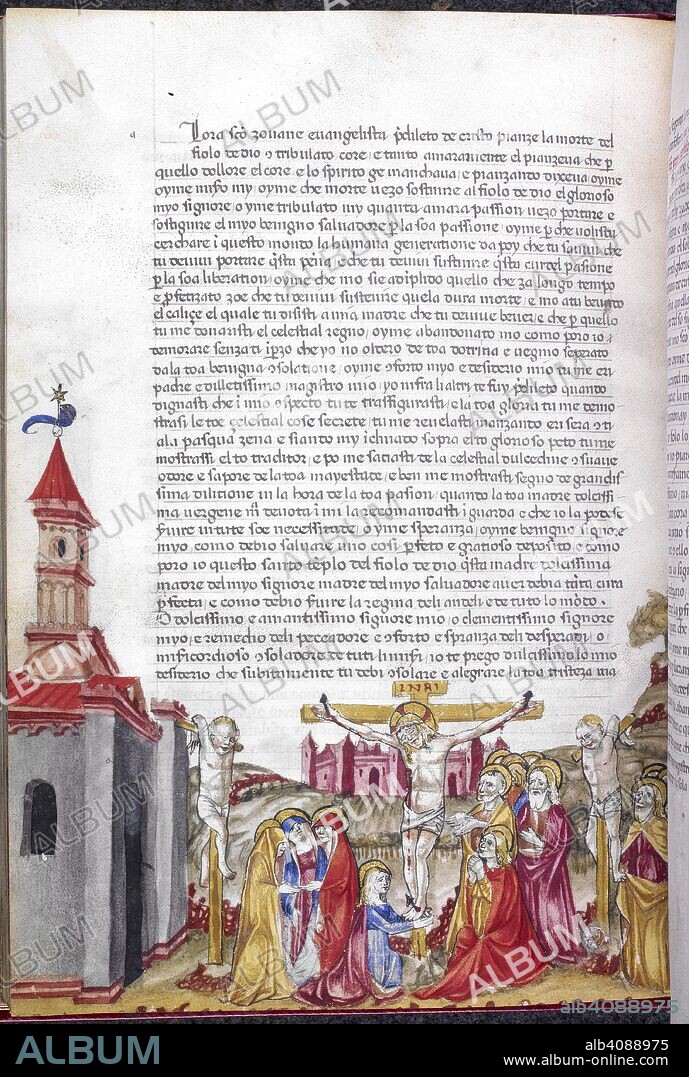 Lora sco zouane euangelista pdileto de cristo pianze la morte del
fiolo de dio 9 tribulato core e tanto amaramente el pianzeua che p
quello dollore el core e lo spirito ge manchaua e pianzando diceua oyme
oyme my oyme che morte uezo sostinire al fiolo de dio el glorioso
myo signore o yme tribulato my quanta amara passion uezo portare e
sostignire el myo benigno saluador p la soa passione oyme p che uolisti
cerchare i questo mondo la humana generatione da poy che tu
tu deuiui portare qsta pena che tu deuiui sustinire qsta crudel passione
p la soa liberation oyme che mo sie adiplido quello che za longo tempo
e pfetizato zoe che tu deuiui sustenire quela dura morte e mo ai beuuto
el caliçe el quale tu disisti a mia madre che tu deuiue beuer e che p quello
tu me donaristi el celestial regno oyme abandonato mo como poro io
demorare senza ti che yo no oldero de toa dotrina e uegnio seperato
da la toa benigna 9solatione oyme 9forto myo e desiderio mio tu me eri
padre e dilletissimo magistro mio yo infra li altri te fuy pdileto quando
dignasti che i mio 9specto tu te trasfigurasti e la toa gloria tu me demo
strasi le toe çelestial cose secrete tu me reuelasti manzando eri sera 9 ti
a la pasqua zena e siando my ichinado sopra el to glorioso peto tu me
mostrassi el to traditor e po me saciasti de la celestial dulcedine 9 suaue
odore e sapore de la toa mayestade e ben me mostrasti segno de grandis
sima dilitione in la hora de la toa passion quando la toa madre dolcissi
ma uergene mª deuota i mi la ricomandasti i guarda e che io la podese
seruire in tute soe necessitade oyme speranza oyme benigno signore
myo como debio saluare uno cosi pfeto e gratioso deposito e como
poro io questo santo teplo del fiolo de dio qsta madre dolcissima
madre del myo signore madre del myo saluadore auer debia tuta cura
pfecta e como debio seruire la regina deli anceli e de tuto lo modo.
O dolcissimo e amantissimo signore mio o clementissimo signore
myo e remedio deli peccadore e 9forto e spranza deli desperadi o
misericordioso 9soladore de tuti li io te prego dulcissimo mio
desiderio che subitamente tu debi 9solare e alegrare la toa tristeza ma
INRI
ALBUM
alb4088975
ALBUM
alb4088975
album-online.com